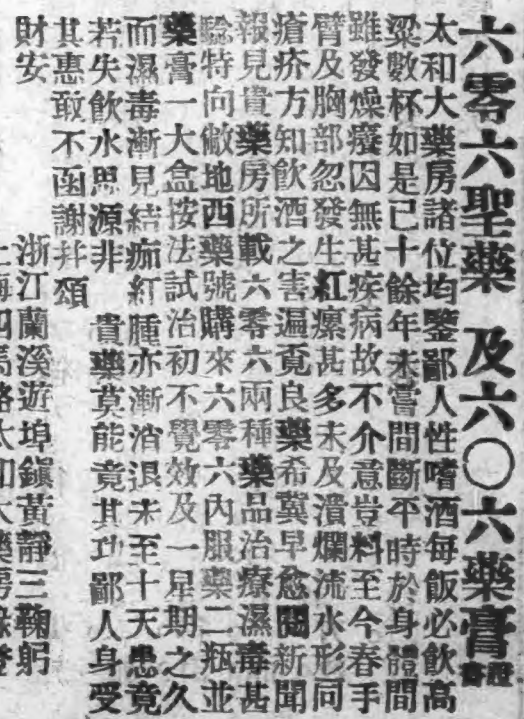 六零六聖藥 及六〇六藥膏
證書
太和大藥房諸位均鑒鄙人性嗜酒每飯必飲高
粱數杯如是已十餘年未嘗間斷平時於身體間
雖發燥癢因無甚疾病故不介意豈料至今春手
臂及胸部忽發生紅瘰甚多未及潰爛流水形同
瘡疥方知飲酒之害遍覓良藥希冀早愈閱新聞
報見貴藥房所載六零六兩種藥品治療濕毒甚
驗特向敝地西藥號購來六零六內服藥二瓶並
藥膏一大盒按法試治初不覺效及一星期之久
而濕毒漸見結痂紅腫亦漸消退未至十天患竟
若失飲水思源非 貴藥莫能竟其功鄙人身受
其惠敢不函謝并頌
財安 浙江蘭溪遊埠鎮黃靜三鞠躬
上海四馬路太和大藥房